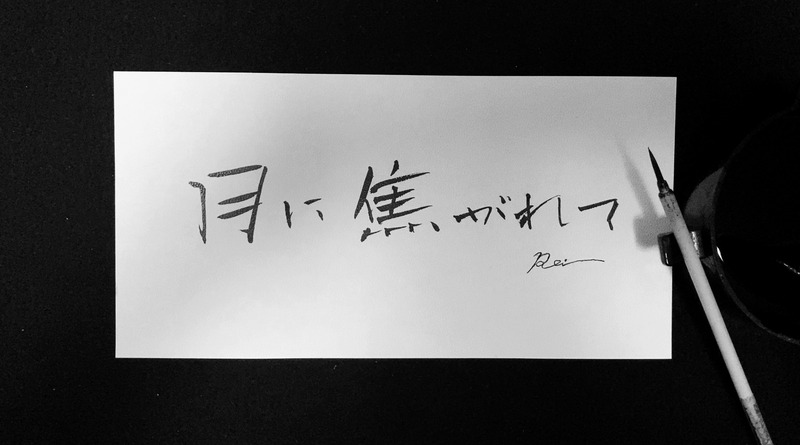 月に焦がれて
Rei